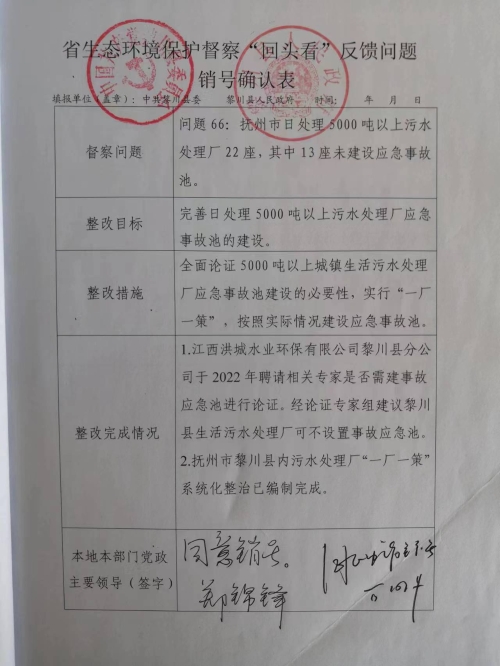 省生态环境保护督察“回头看”反馈问题
销号确认表
填报单位（盖章）：中共黎川县委 黎川县人民政府 时间： 年 月 日
督察问题
问题 66：抚州市日处理 5000 吨以上污水
处理厂 22 座，其中 13 座未建设应急事故
池。
整改目标
完善日处理 5000 吨以上污水处理厂应急
事故池的建设。
整改措施
全面论证 5000 吨以上城镇生活污水处理
厂应急事故池建设的必要性，实行“一厂
一策”，按照实际情况建设应急事故池。
整改完成情况
1.江西洪城水业环保有限公司黎川县分公
司于 2022 年聘请相关专家是否需建事故
应急池进行论证。经论证专家组建议黎川
县生活污水处理厂可不设置事故应急池。
2.抚州市黎川县内污水处理厂“一厂一策”
系统化整治已编制完成。
本地本部门党政
主要领导（签字）
同意销号。
郑锦锋